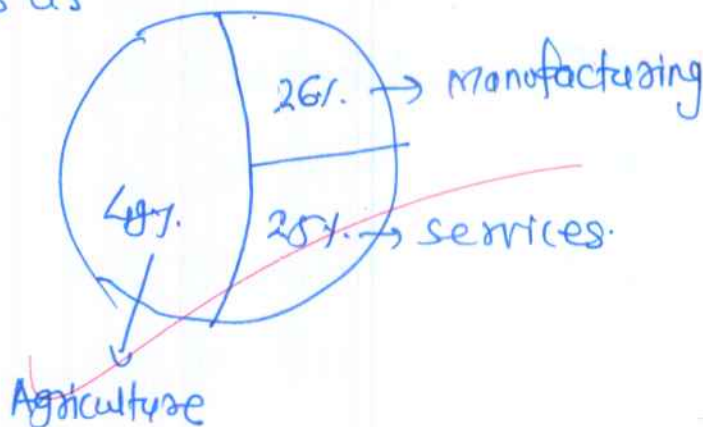 26%. → Manufacturing
49%.
25%. → services.
Agriculture